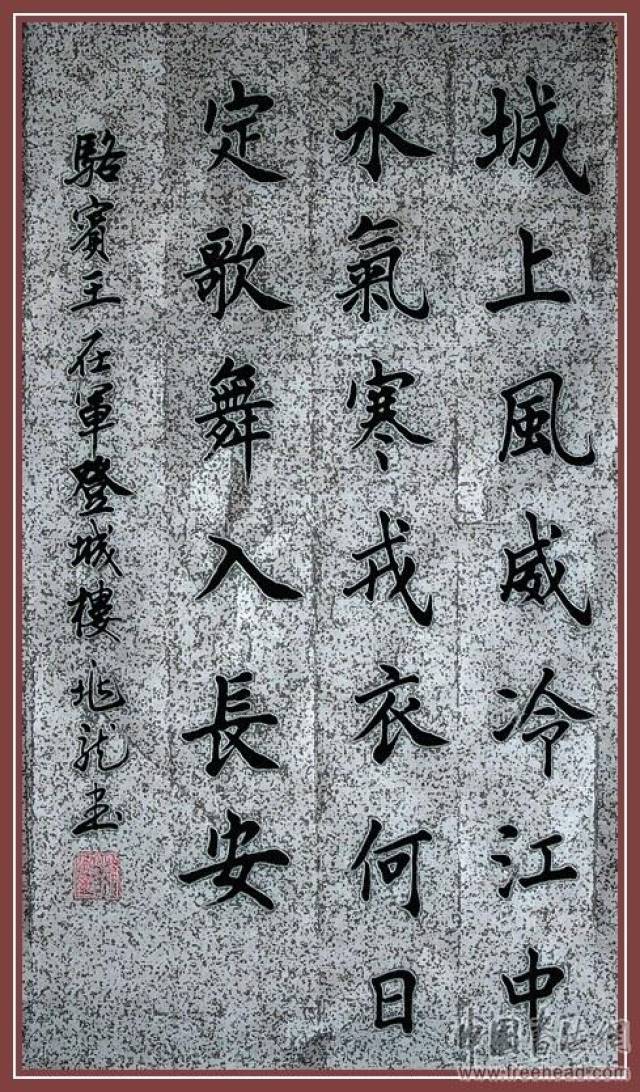 城上風威冷江中
水氣寒戎衣何日
定歌舞入長安
駱賓王在軍登城樓 兆龙书
中国书法网
www.freehead.com